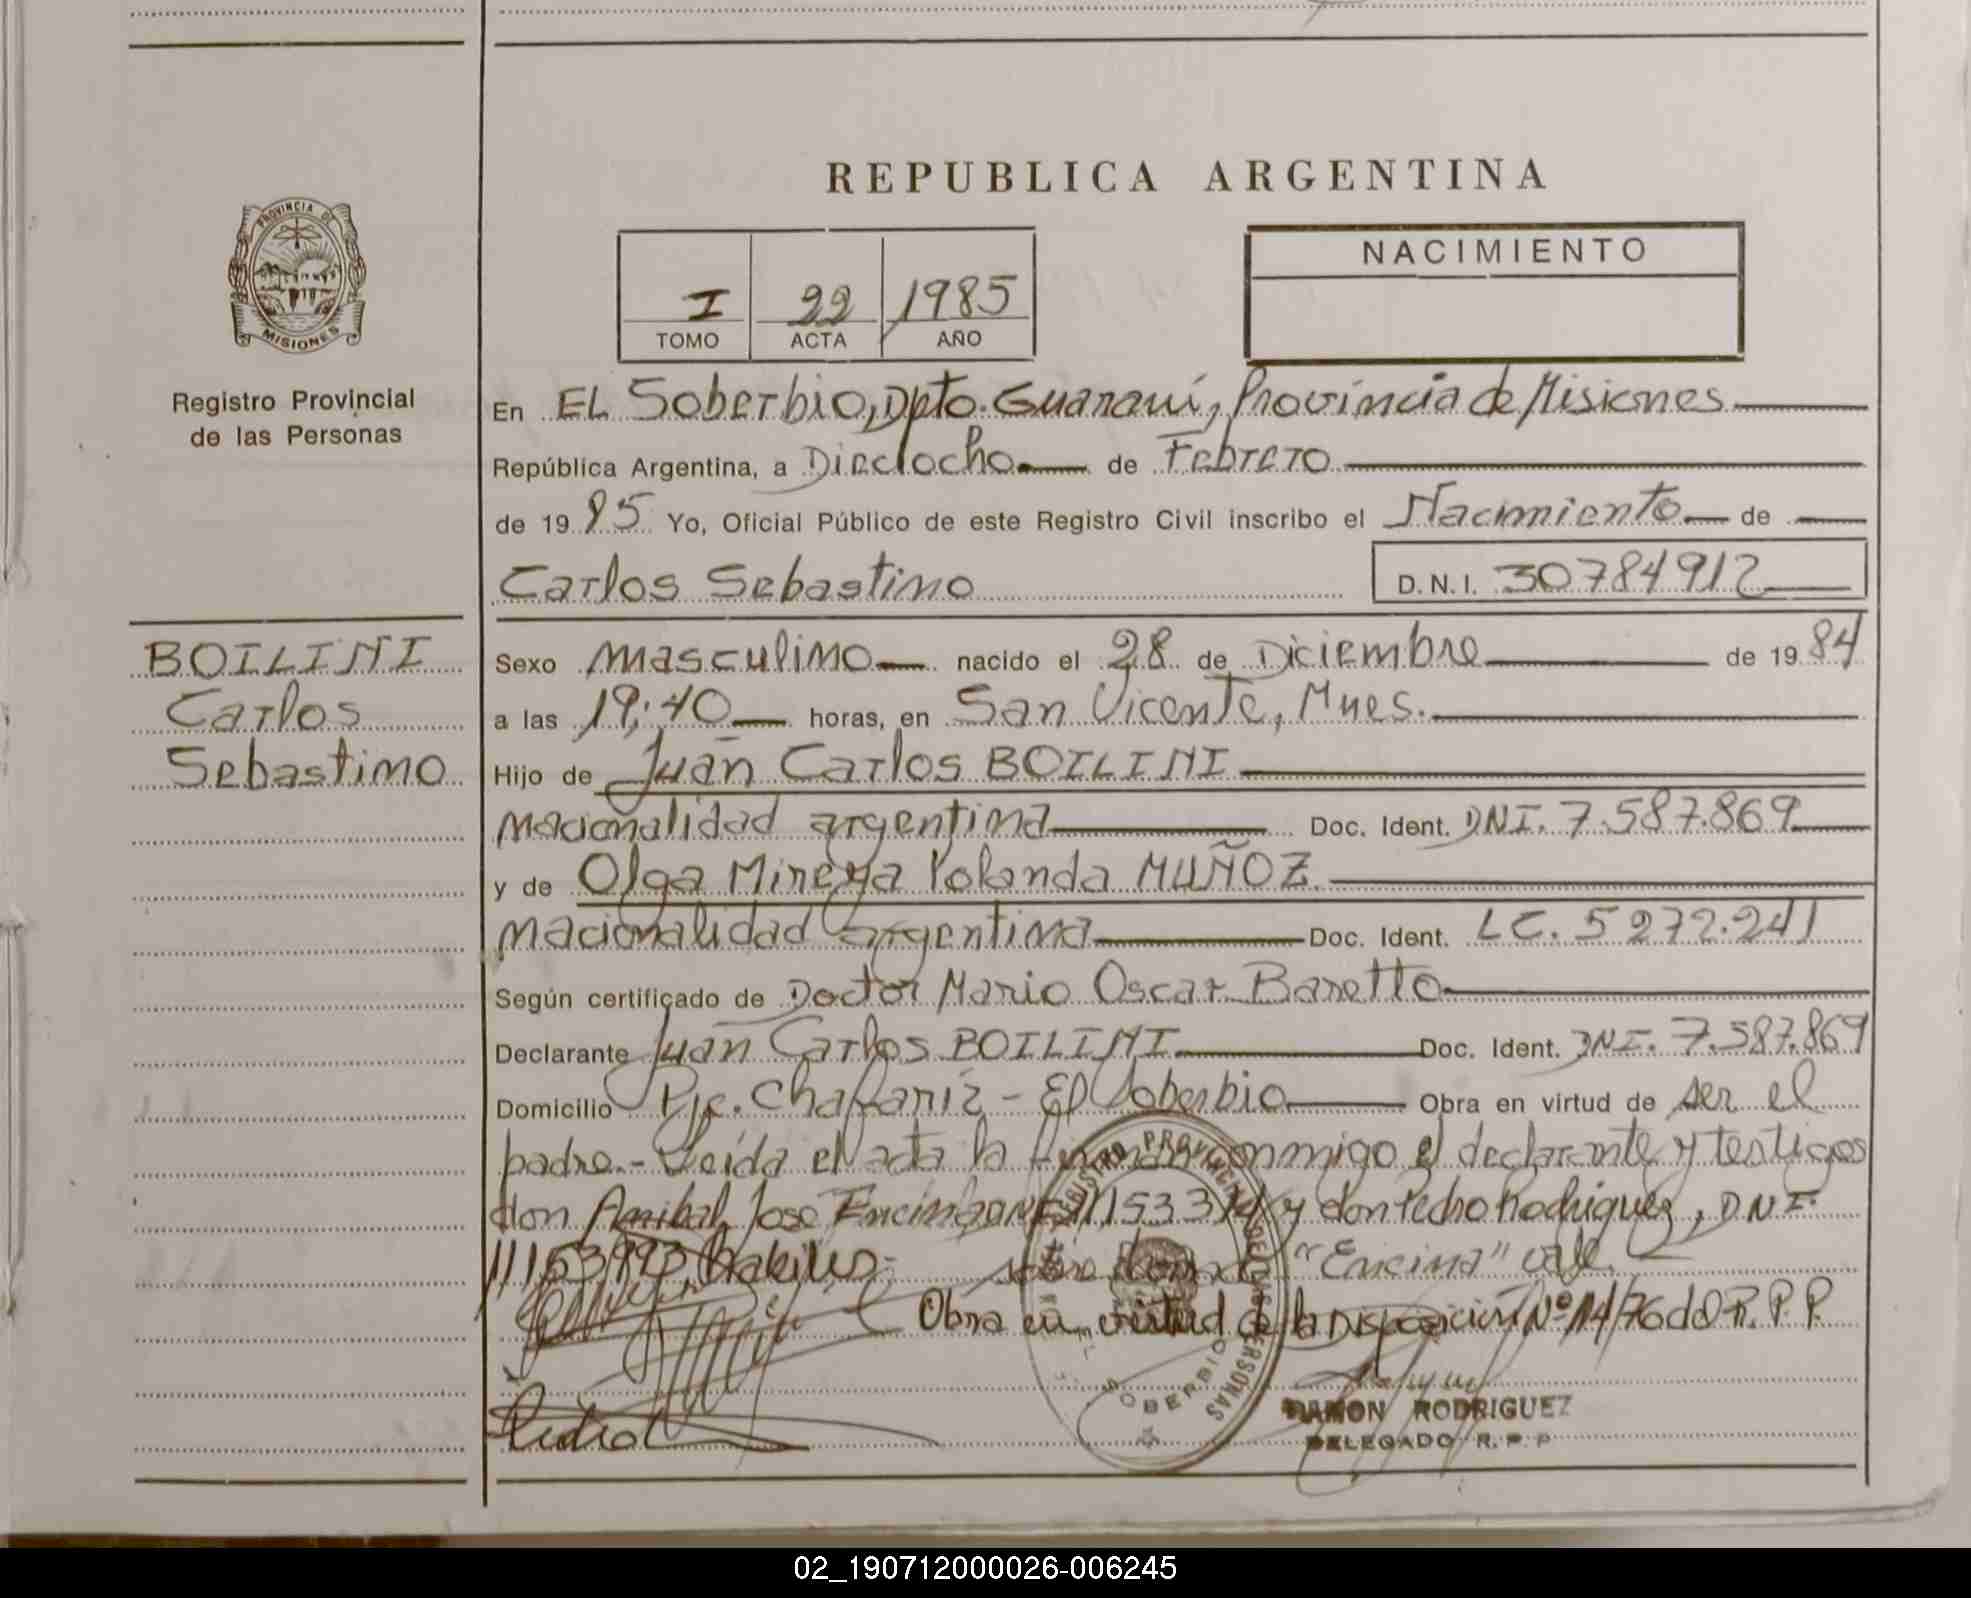 REPUBLICA ARGENTINA
PROVINCIA DE
MISIONES
Registro Provincial
de las Personas
I 22 1985
TOMO ACTA AÑO
NACIMIENTO
En EL Soberbio, Dpto. Guaraní, Provincia de Misiones
República Argentina, a Dieciocho de Febrero
de 19 85 Yo, Oficial Público de este Registro Civil inscribo el Nacimiento de
Carlos Sebastino D.N.I. 30784912
BOILINI
Carlos
Sebastino
Sexo masculino nacido el 28 de Diciembre de 19 84
a las 19:40 horas, en San Vicente, Mnes.
Hijo de Juan Carlos BOILINI
nacionalidad argentina Doc. Ident. DNI. 7.587.869
y de Olga Mireya Yolanda MUÑOZ
nacionalidad argentina Doc. Ident. LC. 5272.241
Según certificado de Doctor Mario Oscar Baretto
Declarante Juan Carlos BOILINI Doc. Ident. DNI. 7.587.869
Domicilio Pje. Chafariz - El Soberbio Obra en virtud de ser el
padre.- Leída el acta la conmigo el declarante y testigos
don Anibal Jose Encina y don Pedro Rodriguez, DNI.
11153993 "Encina" vale
Obra en virtud de la Disposición Nº 14/76 del R.P.P.
Pedro
SOBERBIO
RAMON RODRIGUEZ
DELEGADO R.P.P
02_190712000026-006245